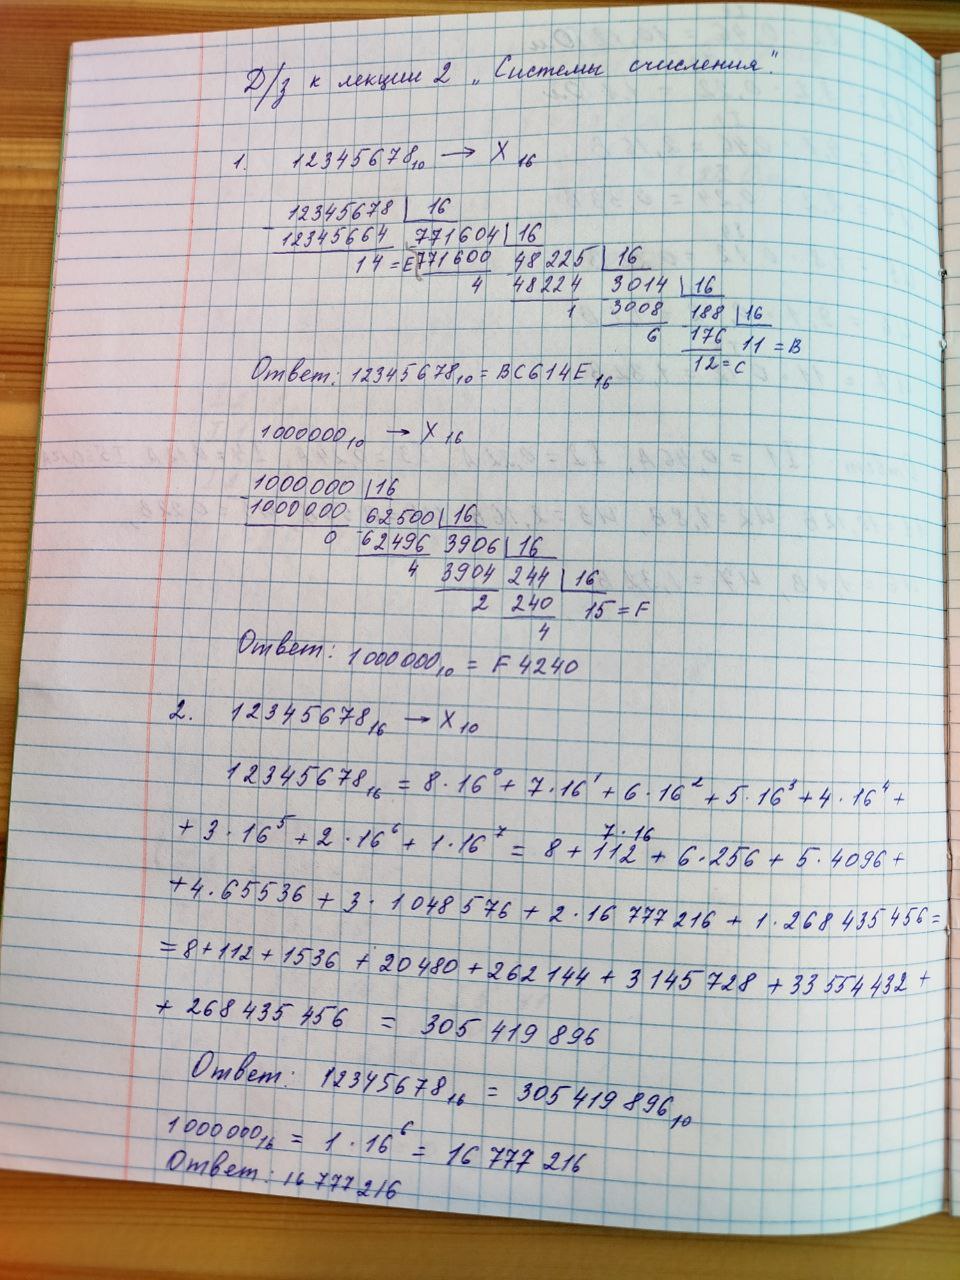 Д/з к лекции 2 „Системы счисления".
1. 12345678₁₀ → X₁₆
12345678 | 16
- 12345664 771604 | 16
14 = E 771600 48225 | 16
4 48224 3014 | 16
1 3008 188 | 16
6 176 11 = B
12 = C
Ответ: 12345678₁₀ = BC614E₁₆
1000000₁₀ → X₁₆
- 1000000 | 16
1000000 62500 | 16
0 - 62496 3906 | 16
4 3904 244 | 16
2 240 15 = F
4
Ответ: 1000000₁₀ = F4240
2. 12345678₁₆ → X₁₀
12345678₁₆ = 8·16⁰ + 7·16¹ + 6·16² + 5·16³ + 4·16⁴ +
+ 3·16⁵ + 2·16⁶ + 1·16⁷ = 8 + 112 + 6·256 + 5·4096 +
7·16
+ 4·65536 + 3·1048576 + 2·16 777 216 + 1·268 435 456 =
= 8 + 112 + 1536 + 20480 + 262 144 + 3 145 728 + 33 554 432 +
+ 268 435 456 = 305 419 896
Ответ: 12345678₁₆ = 305 419 896₁₀
1000000₁₆ = 1·16⁶ = 16 777 216
Ответ: 16 777 216